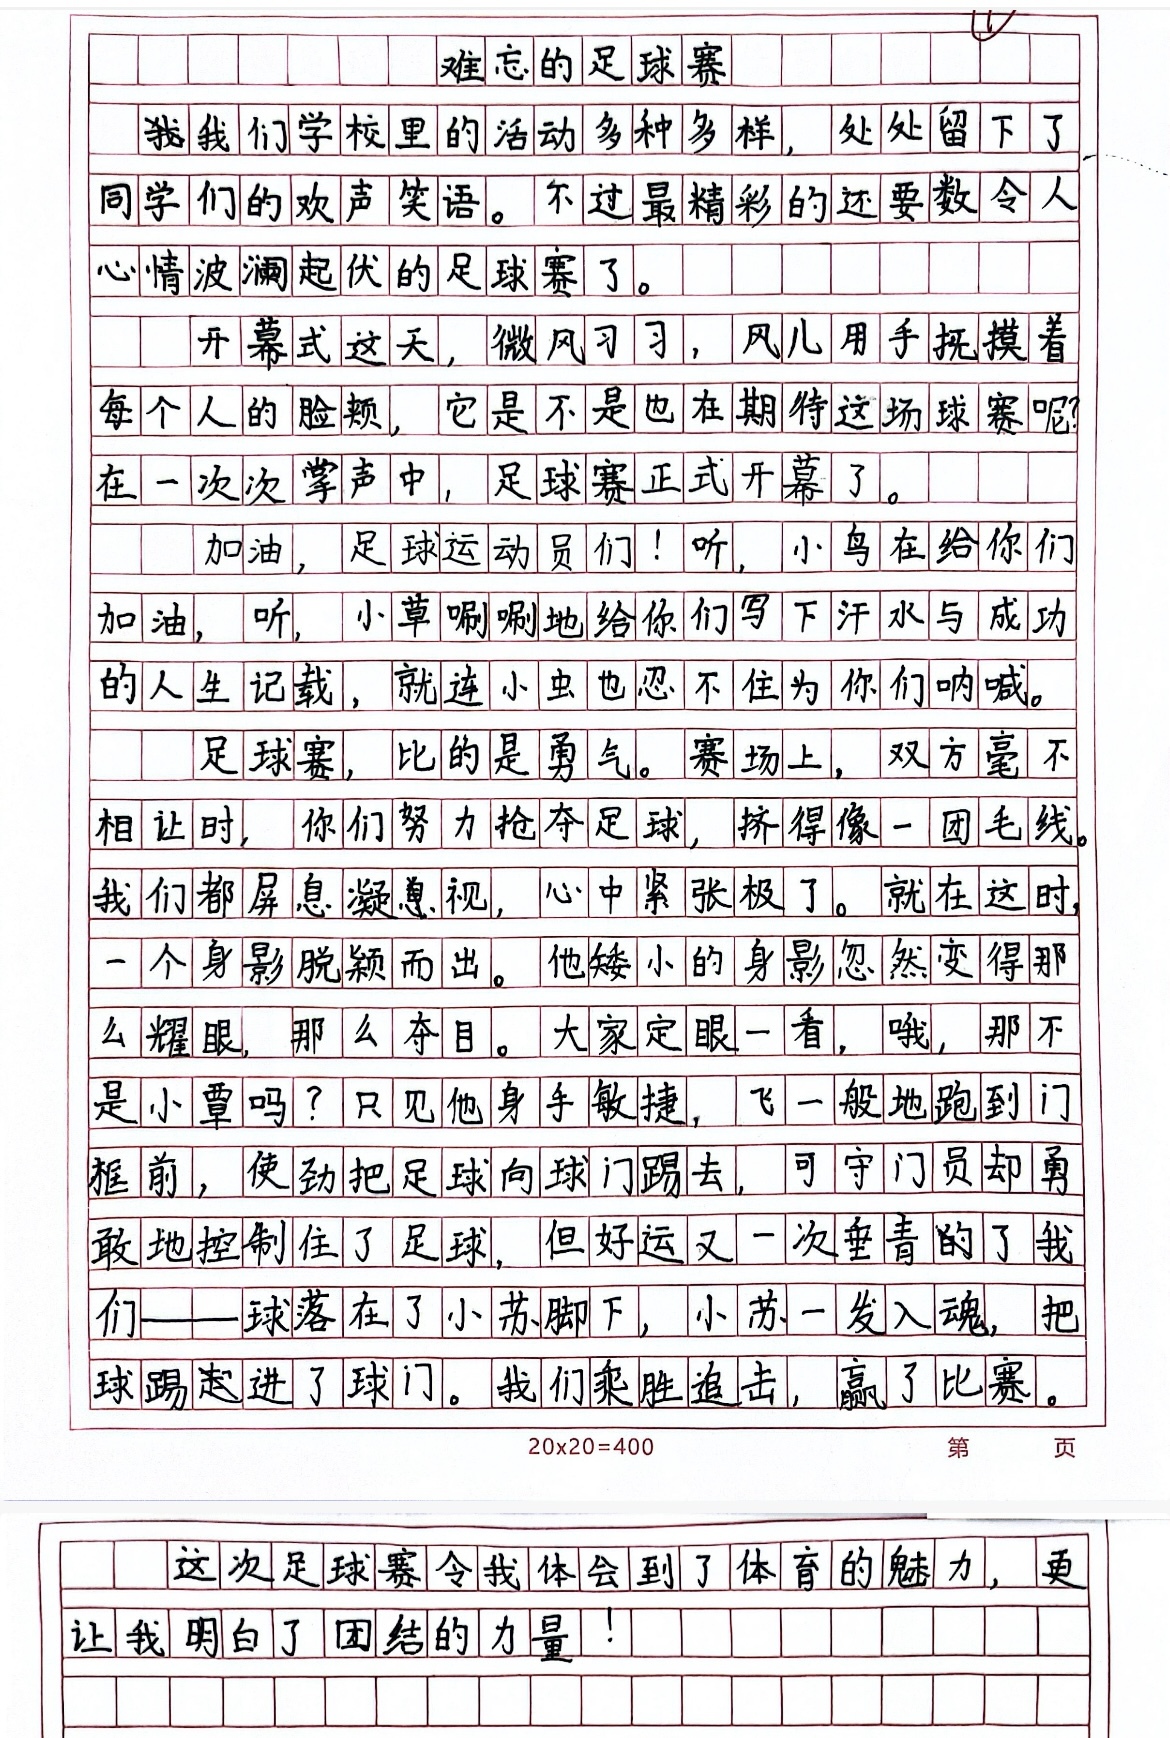 难忘的足球赛
我我们学校里的活动多种多样，处处留下了
同学们的欢声笑语。不过最精彩的还要数令人
心情波澜起伏的足球赛了。
开幕式这天，微风习习，风儿用手抚摸着
每个人的脸颊，它是不是也在期待这场球赛呢？
在一次次掌声中，足球赛正式开幕了。
加油，足球运动员们！听，小鸟在给你们
加油，听，小草唰唰地给你们写下汗水与成功
的人生记载，就连小虫也忍不住为你们呐喊。
足球赛，比的是勇气。赛场上，双方毫不
相让时，你们努力抢夺足球，挤得像一团毛线。
我们都屏息凝视，心中紧张极了。就在这时，
一个身影脱颖而出。他矮小的身影忽然变得那
么耀眼，那么夺目。大家定眼一看，哦，那不
是小覃吗？只见他身手敏捷，飞一般地跑到门
框前，使劲把足球向球门踢去，可守门员却勇
敢地控制住了足球，但好运又一次垂青的了我
们——球落在了小苏脚下，小苏一发入魂，把
球踢起进了球门。我们乘胜追击，赢了比赛。
20x20=400 第 页
这次足球赛令我体会到了体育的魅力，更
让我明白了团结的力量！